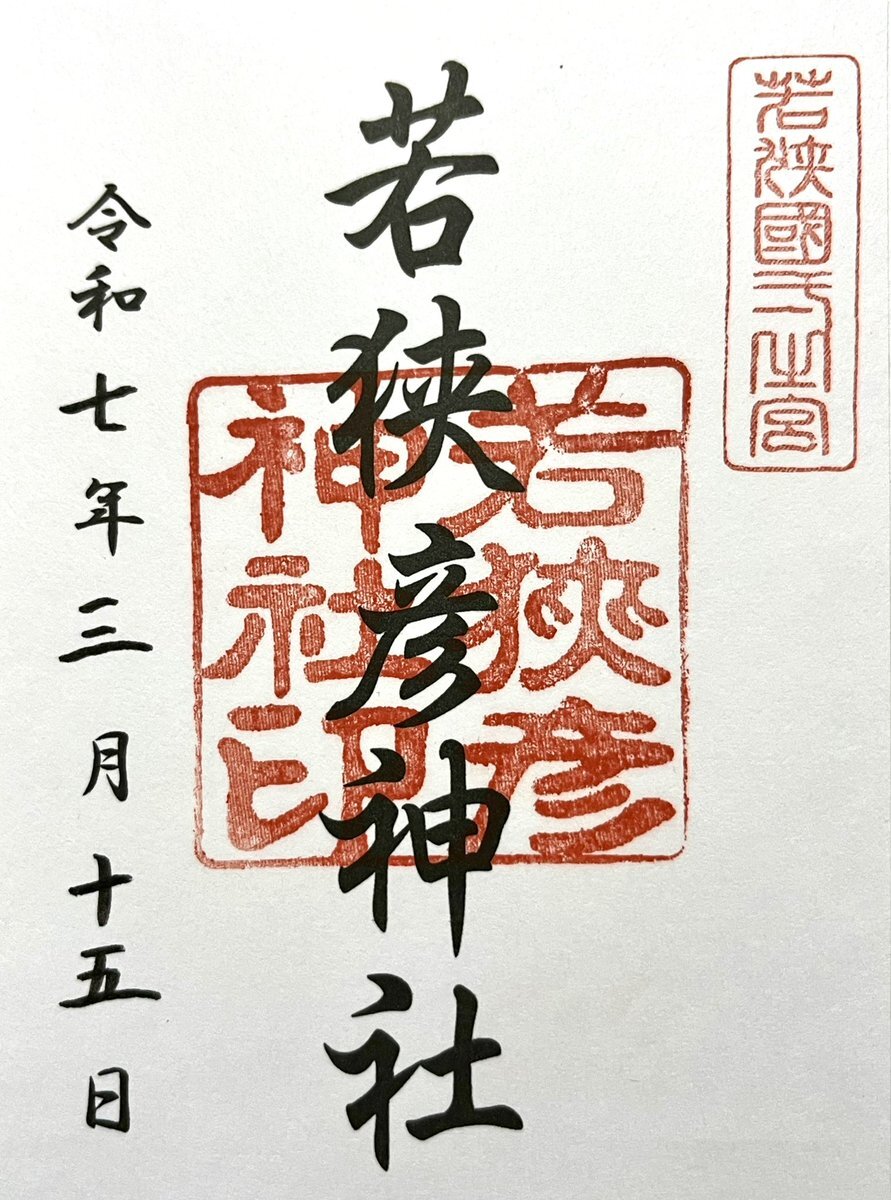 若狭國一之宮
若狭彦神社
若狭彦
神社印
令和七年三月十五日